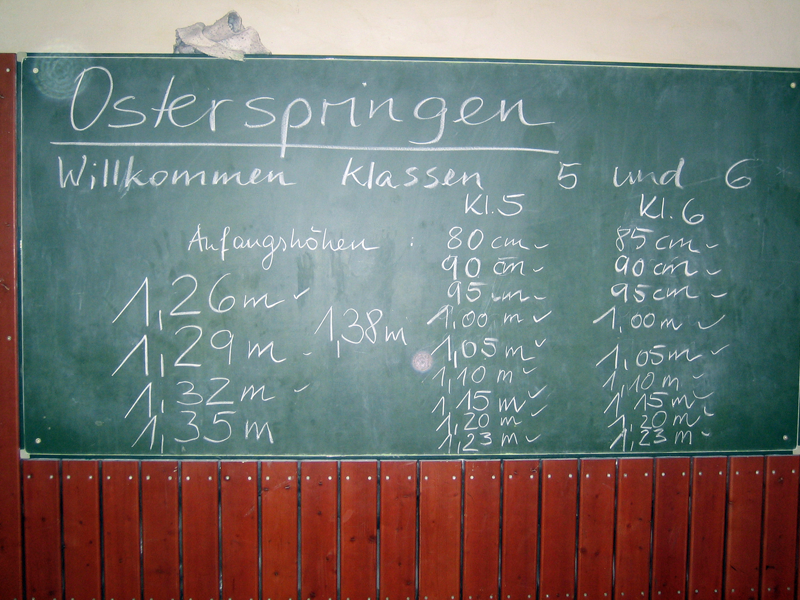 Osterspringen
Willkommen Klassen 5 und 6
Kl.5 Kl.6
Anfangshöhen : 80 cm ✓ 85 cm ✓
90 cm ✓ 90 cm ✓
95 cm ✓ 95 cm ✓
1,00 m ✓ 1,00 m ✓
1,05 m ✓ 1,05 m ✓
1,10 m ✓ 1,10 m ✓
1,15 m ✓ 1,15 m ✓
1,20 m ✓ 1,20 m ✓
1,23 m ✓ 1,23 m ✓
1,26 m ✓
1,29 m ✓
1,32 m ✓
1,35 m
1,38 m